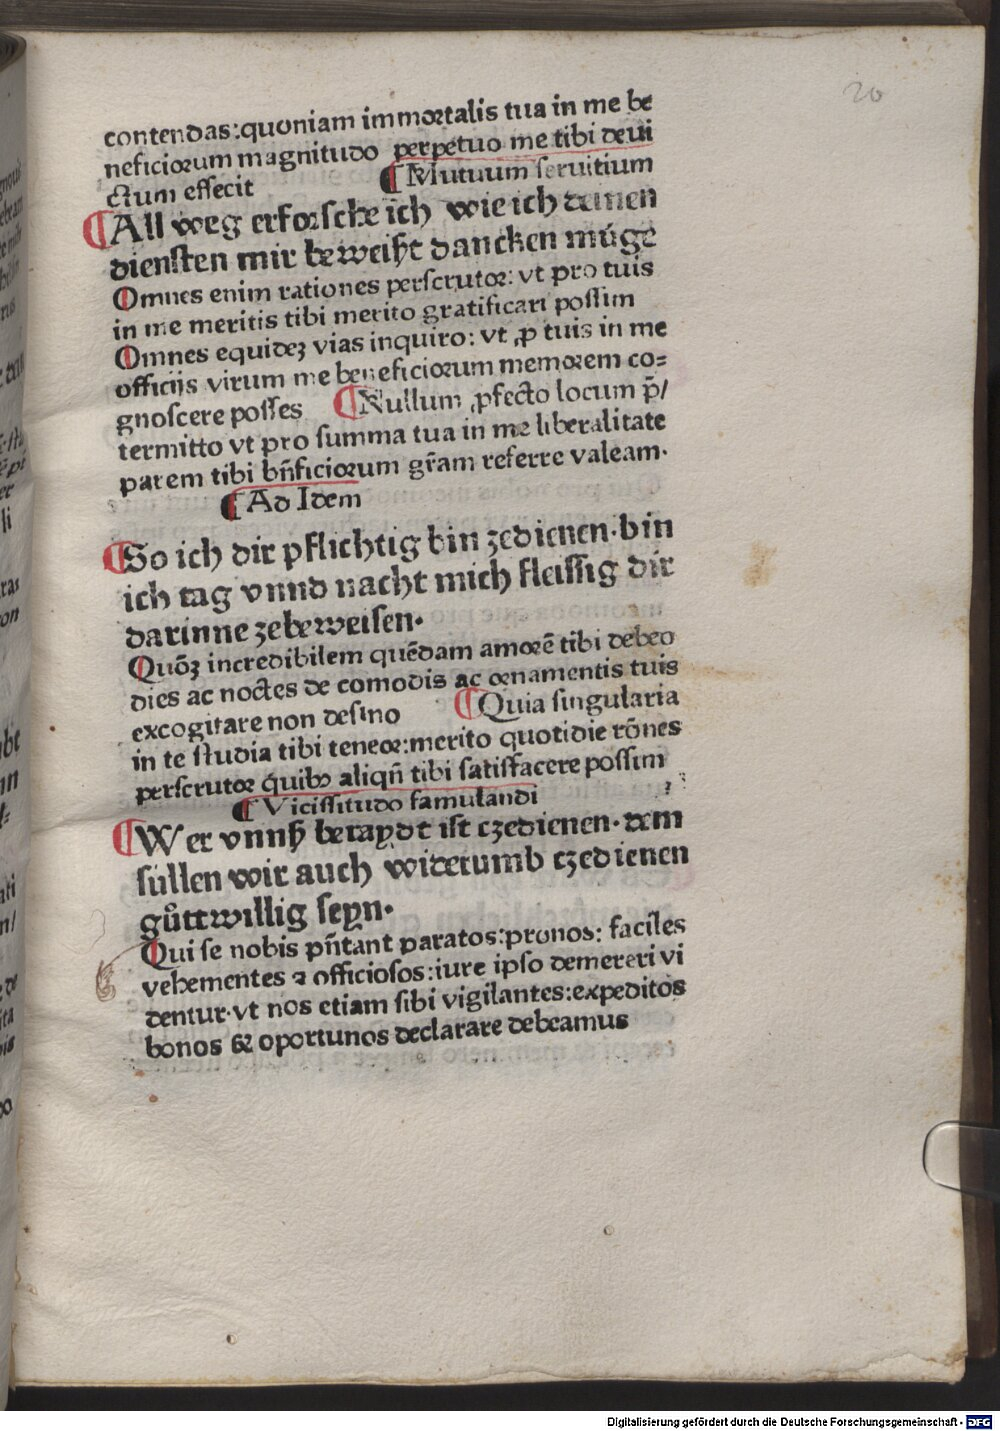 20
contendas: quoniam immortalis tua in me be
neficiorum magnitudo perpetuo me tibi deui
ctum effecit ¶ Mutuum seruitium
¶ All weg erforsche ich wie ich deinen
diensten mir beweißt dancken müge
Omnes enim rationes perscrutor: vt pro tuis
in me meritis tibi merito gratificari possim
Omnes equidez vias inquiro: vt ꝓ tuis in me
officijs virum me beneficiorum memorem co=
gnoscere posses ¶ Nullum ꝓfecto locum p̄/
termitto vt pro summa tua in me liberalitate
parem tibi bn̄ficiorum gr̄am referre valeam.
¶ Ad Idem
¶ So ich dir pflichtig bin zedienen. bin
ich tag vnnd nacht mich fleissig dir
darinne zebeweisen.
Quōꝫ incredibilem quēdam amorē tibi debeo
dies ac noctes de comodis ac ornamentis tuis
excogitare non desino ¶ Quia singularia
in te studia tibi teneor: merito quotidie rōnes
perscrutor q́uibꝰ aliqn̄ tibi satisfacere possim
¶ Vicissitudo famulandi
¶ Wer vnnß beraydt ist czedienen. dem
süllen wir auch widerumb czedienen
gůttwillig seyn.
Qui se nobis pn̄tant paratos: pronos: faciles
vehementes ⁊ officiosos: iure ipso demereri vi
dentur. vt nos etiam sibi vigilantes: expeditos
bonos & oportunos declarare debeamus
Digitalisierung gefördert durch die Deutsche Forschungsgemeinschaft - DFG